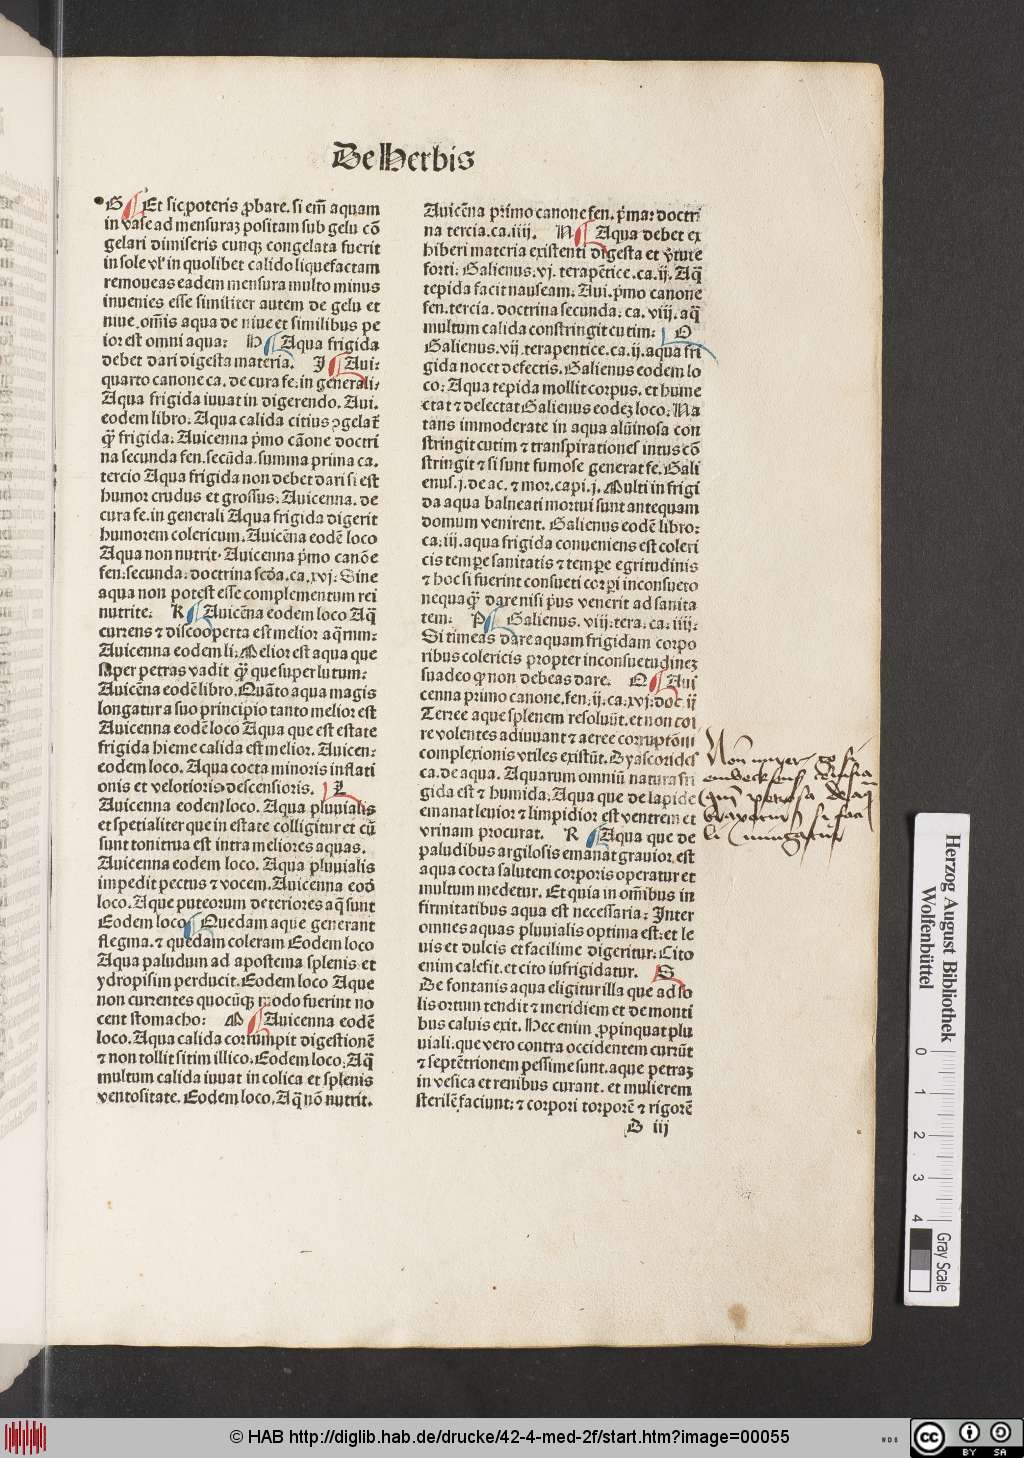 De Herbis
G Et sic poteris ꝓbare. si em̄ aquam
in vase ad mensuraꝫ positam sub gelu cō
gelari dimiseris cunqꝫ congelata fuerit
in sole vl' in quolibet calido liquefactam
remoueas eadem mensura multo minus
inuenies esse similiter autem de gelu et
niue. om̄is aqua de niue et similibus pe
ior est omni aqua: H Aqua frigida
debet dari digesta materia. J Aui-
quarto canone ca. de cura fe. in generali:
Aqua frigida iuuat in digerendo. Aui.
eodem libro. Aqua calida citius ꝯgelat᷑
qꝫ̄ frigida. Auicenna p̄mo cāone doctri
na secunda fen. secūda. summa prima ca.
tercio Aqua frigida non debet dari si est
humor crudus et grossus. Auicenna. de
cura fe. in generali Aqua frigida digerit
humorem colericum. Auicēna eodē loco
Aqua non nutrit. Auicenna p̄mo canōe
fen. secunda. doctrina scďa. ca. xvj. Sine
aqua non potest esse complementum rei
nutrite: K Auicēna eodem loco Aq̄
currens et discooperta est melior aq̄rum:
Auicenna eodem li. Melior est aqua que
super petras vadit qꝫ̄ que super lutum:
Auicēna eodē libro. Quāto aqua magis
longatur a suo principio tanto melior est
Auicenna eodē loco Aqua que est estate
frigida hieme calida est melior. Auicen:
eodem loco. Aqua cocta minoris inflati
onis et velotioris descensioris. L
Auicenna eodem loco. Aqua pluuialis
et spetialiter que in estate colligitur et cū
sunt tonitrua est intra meliores aquas.
Auicenna eodem loco. Aqua pluuialis
impedit pectus et vocem. Auicenna eoď
loco. Aque puteorum deteriores aq̄ sunt
Eodem loco. Quedam aque generant
flegma. et quedam coleram Eodem loco
Aqua paludum ad apostema splenis et
ydropisim perducit. Eodem loco Aque
non currentes quocūqꝫ modo fuerint no
cent stomacho: M Auicenna eodē
loco. Aqua calida corrumpit digestionē
et non tollit sitim illico. Eodem loco. Aq̄
multum calida iuuat in colica et splenis
ventositate. Eodem loco. Aq̄ nō nutrit.
Auicēna primo canone fen. p̄ma: doctri
na tercia. ca. iiij. N Aqua debet ex
hiberi materia existenti digesta et v̄tute
forti. Galienus. vj. terapētice. ca. ij. Aq̄
tepida facit nauseam. Aui. p̄mo canone
fen. tercia. doctrina secunda. ca. viij. aq̄
multum calida constringit cutim: O
Galienus. vij. terapentice. ca. ij. aqua fri
gida nocet defectis. Galienus eodem lo
co. Aqua tepida mollit corpus. et hume
ctat et delectat Galienus eodeꝫ loco. Na
tans immoderate in aqua alūinosa con
stringit cutim et transpirationes intus cō
stringit et si sunt fumose generat fe. Gali
enus. j. de ac. et mor. capi. j. Multi in frigi
da aqua balneati mortui sunt antequam
domum venirent. Galienus eodē libro:
ca. iij. aqua frigida conueniens est coleri
cis tempe sanitatis et tempe egritudinis
et hoc si fuerint consueti corpi inconsueto
nequaqꝫ̄ dare nisi p̄us venerit ad sanita
tem: P Galienus. viij. tera. ca. iiij.
Si timeas dare aquam frigidam corpo
ribus colericis propter inconsuetudineꝫ
suadeo qꝫ non debeas dare. Q Aui
cenna primo canone. fen. ij. ca. xvj. doc. ij
Terree aque splenem resoluūt. et non coi
re volentes adiuuant et aeree corruptōni
complexionis vtiles existūt. Dyascorides
ca. de aqua. Aquarum omniū natura fri
gida est et humida. Aqua que de lapide
emanat leuior et limpidior est ventrem et
vrinam procurat. R Aqua que de
paludibus argilosis emanat grauior est
aqua cocta salutem corporis operatur et
multum medetur. Et quia in om̄ibus in
firmitatibus aqua est necessaria: Inter
omnes aquas pluuialis optima est. et le
uis et dulcis et facilime digeritur. Cito
enim calefit. et cito infrigidatur. S
De fontanis aqua eligitur illa que ad so
lis ortum tendit et meridiem et de monti
bus caluis exit. Hec enim ꝓpinquat plu
uiali. que vero contra occidentem currūt
et septētrionem pessime sunt. aque petraꝫ
in vesica et renibus curant. et mulierem
sterilē faciunt: et corpori torporē et rigorē
B iij
Herzog August Bibliothek
Wolfenbüttel
0 1 2 3 4
Gray Scale
© HAB http://diglib.hab.de/drucke/42-4-med-2f/start.htm?image=00055
WDB
cc BY SA